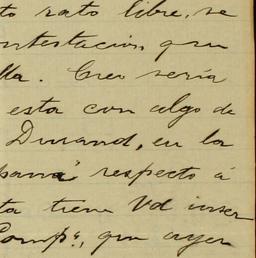 to rato libre, se
ntestación que
lla. Creo sería
esta con algo de
Durand, en la
pana" respecto á
ta tiene Vd inser
Compª, que ayer